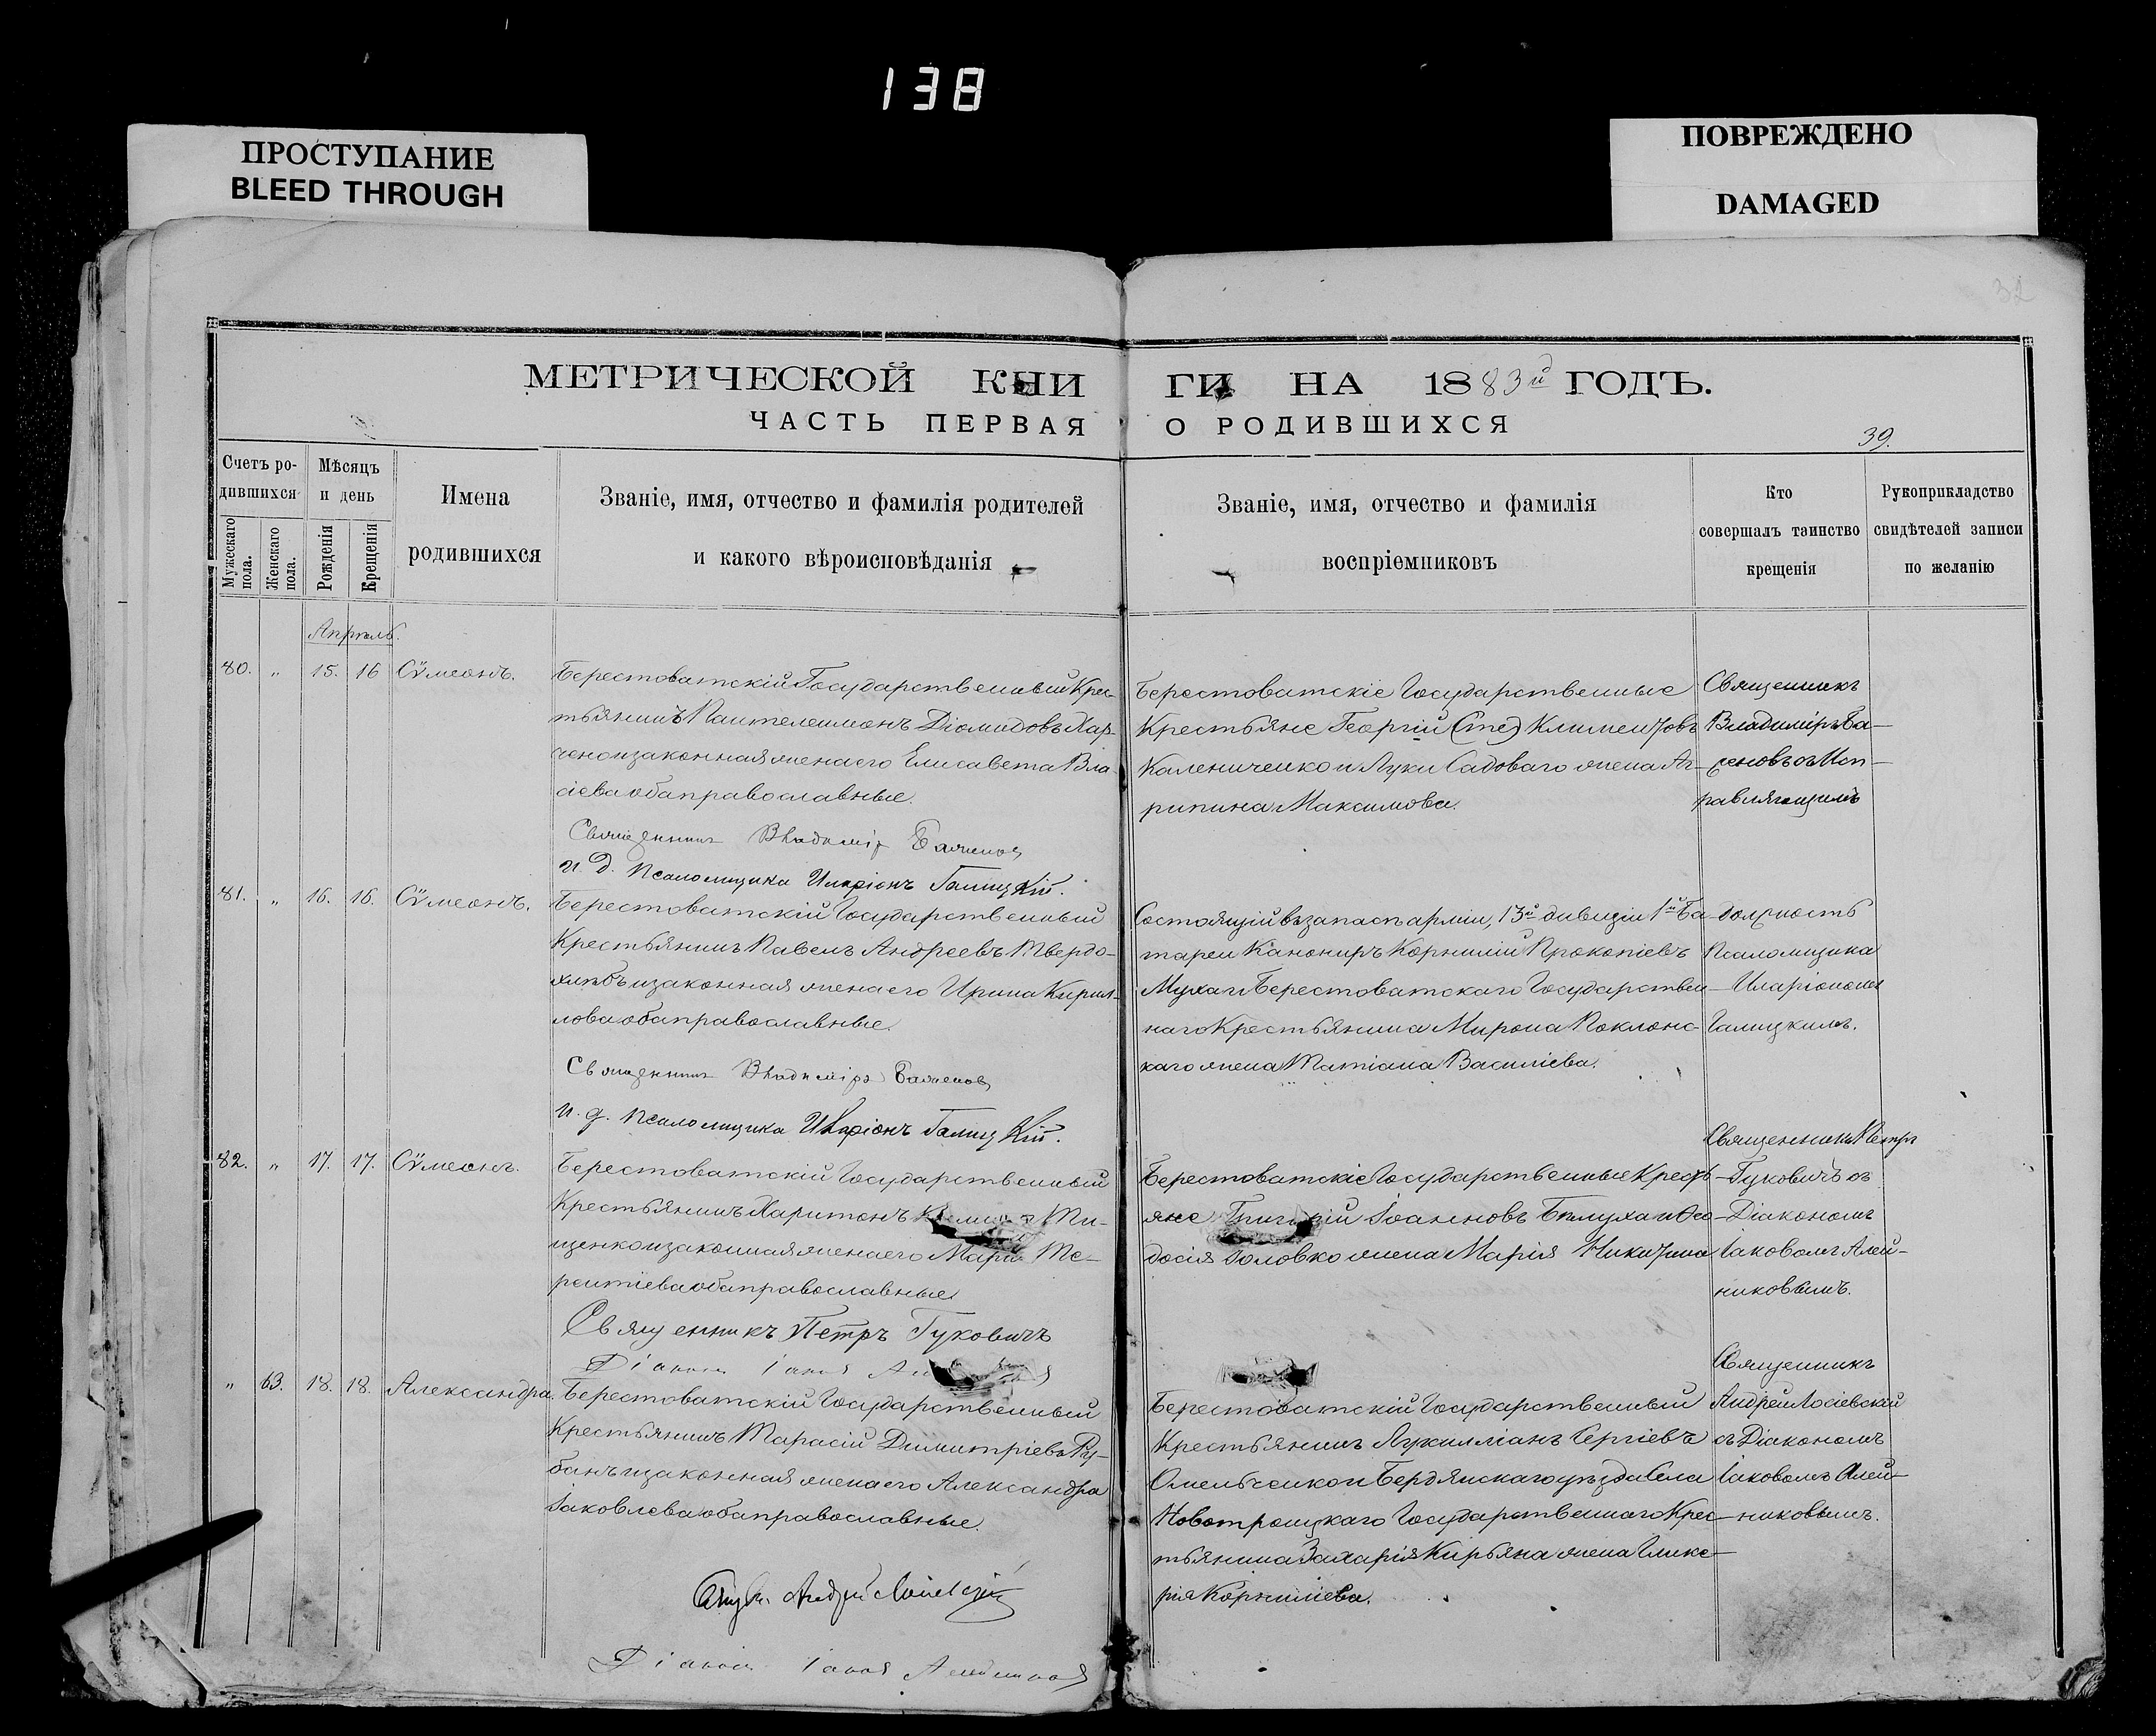 138
ПРОСТУПАНИЕ
BLEED THROUGH
ПОВРЕЖДЕНО
DAMAGED
32
МЕТРИЧЕСКОЙ КНИГИ НА 1883й ГОДЪ.
ЧАСТЬ ПЕРВАЯ О РОДИВШИХСЯ
39.
Счетъ ро-
дившихся
Мужескаго пола.
Женскаго пола.
Мѣсяцъ
и день
Рожденія
Крещенія
Имена
родившихся
Званіе, имя, отчество и фамилія родителей
и какого вѣроисповѣданія
Званіе, имя, отчество и фамилія
воспріемниковъ
Кто
совершалъ таинство
крещенія
Рукоприкладство
свидѣтелей записи
по желанію
Апрѣль.
80. „ 15. 16 Сѵмеонъ.
Берестоватскій Государственный Крес-
тьянинъ Пантелеимонъ Діомидовъ Хар-
ченко и законная жена его Елисавета Вла-
сіева оба православные.
Священникъ Владиміръ
и д. Псаломщика Иларіонъ Галицкій.
Берестоватскіе Государственные
Крестьяне Георгій Климентовъ
Калениченко и Луки Садоваго жена Аг-
рипина Максимова.
Священникъ
Владиміръ Ба-
женовъ съ Исп-
равляющимъ
81. „ 16. 16. Сѵмеонъ.
Берестоватскій Государственный
Крестьянинъ Павелъ Андреевъ Твердо-
хлѣбъ и законная жена его Ирина Кирил-
лова оба православные.
Священникъ Владиміръ
и. д. Псаломщика Иларіонъ Галицкій.
Состоящій въ запасѣ арміи, 13й дивизіи 1й Ба-
тареи Канониръ Корнилій Прокопіевъ
Муха и Берестоватскаго Государствен-
наго Крестьянина Мирона Поклонс-
каго жена Татіана Василіева.
должность
Псаломщика
Иларіономъ
Галицкимъ.
82. „ 17. 17. Сѵмеонъ.
Берестоватскій Государственный
Крестьянинъ Харитонъ Ти-
щенко и законная жена его Марія Те-
рентіева оба православные.
Священникъ Петръ Гуковичъ
Діаконъ
Берестоватскіе Государственные Кресть-
яне Григорій Іоанновъ Билуха и Ѳео-
досія Головко жена Марія Никитина
Священникъ Петръ
Гуковичъ съ
Діакономъ
Іаковомъ Алей-
никовымъ.
„ 63. 18. 18. Александра.
Берестоватскій Государственный
Крестьянинъ Тарасій Димитріевъ Ру-
банъ и законная жена его Александра
Іаковлева оба православные.
Андрей
Діаконъ
Берестоватскій Государственный
Крестьянинъ Лукилліанъ Сергіевъ
Омельченко и Бердянскаго уѣзда Села
Новотроицкаго Государственнаго Крес-
тьянина Захарія Кирьяна жена Глике-
рія Корниліева.
Священникъ
Андрей Лосіевскій
съ Діакономъ
Іаковомъ Алей-
никовымъ.